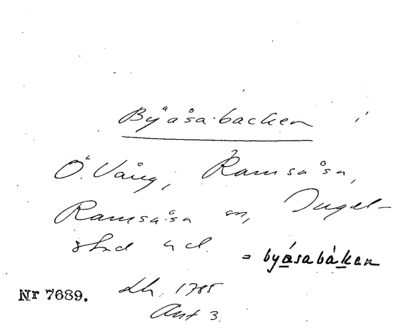 Byåsabacken i
Ö. Vång, Ramsåsa,
Ramsåsa sn, Ingel-
stad hd.
= byásabàken
Nr 7689.
Lh. 1785
Akt 3.